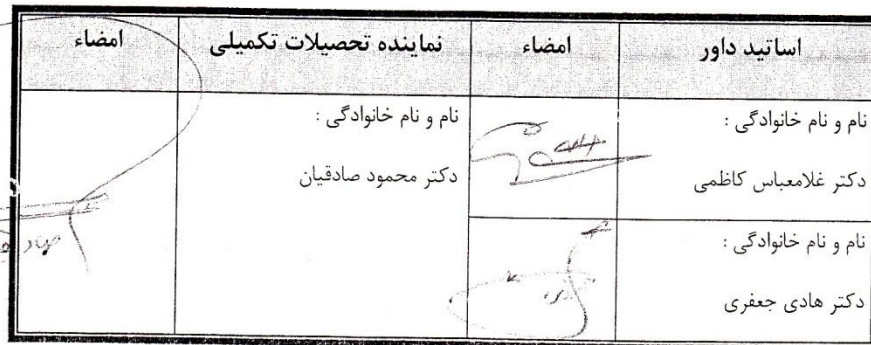 اساتید داور
امضاء
نماینده تحصیلات تکمیلی
امضاء
نام و نام خانوادگی :
دکتر غلامعباس کاظمی
نام و نام خانوادگی :
دکتر محمود صادقیان
نام و نام خانوادگی :
دکتر هادی جعفری